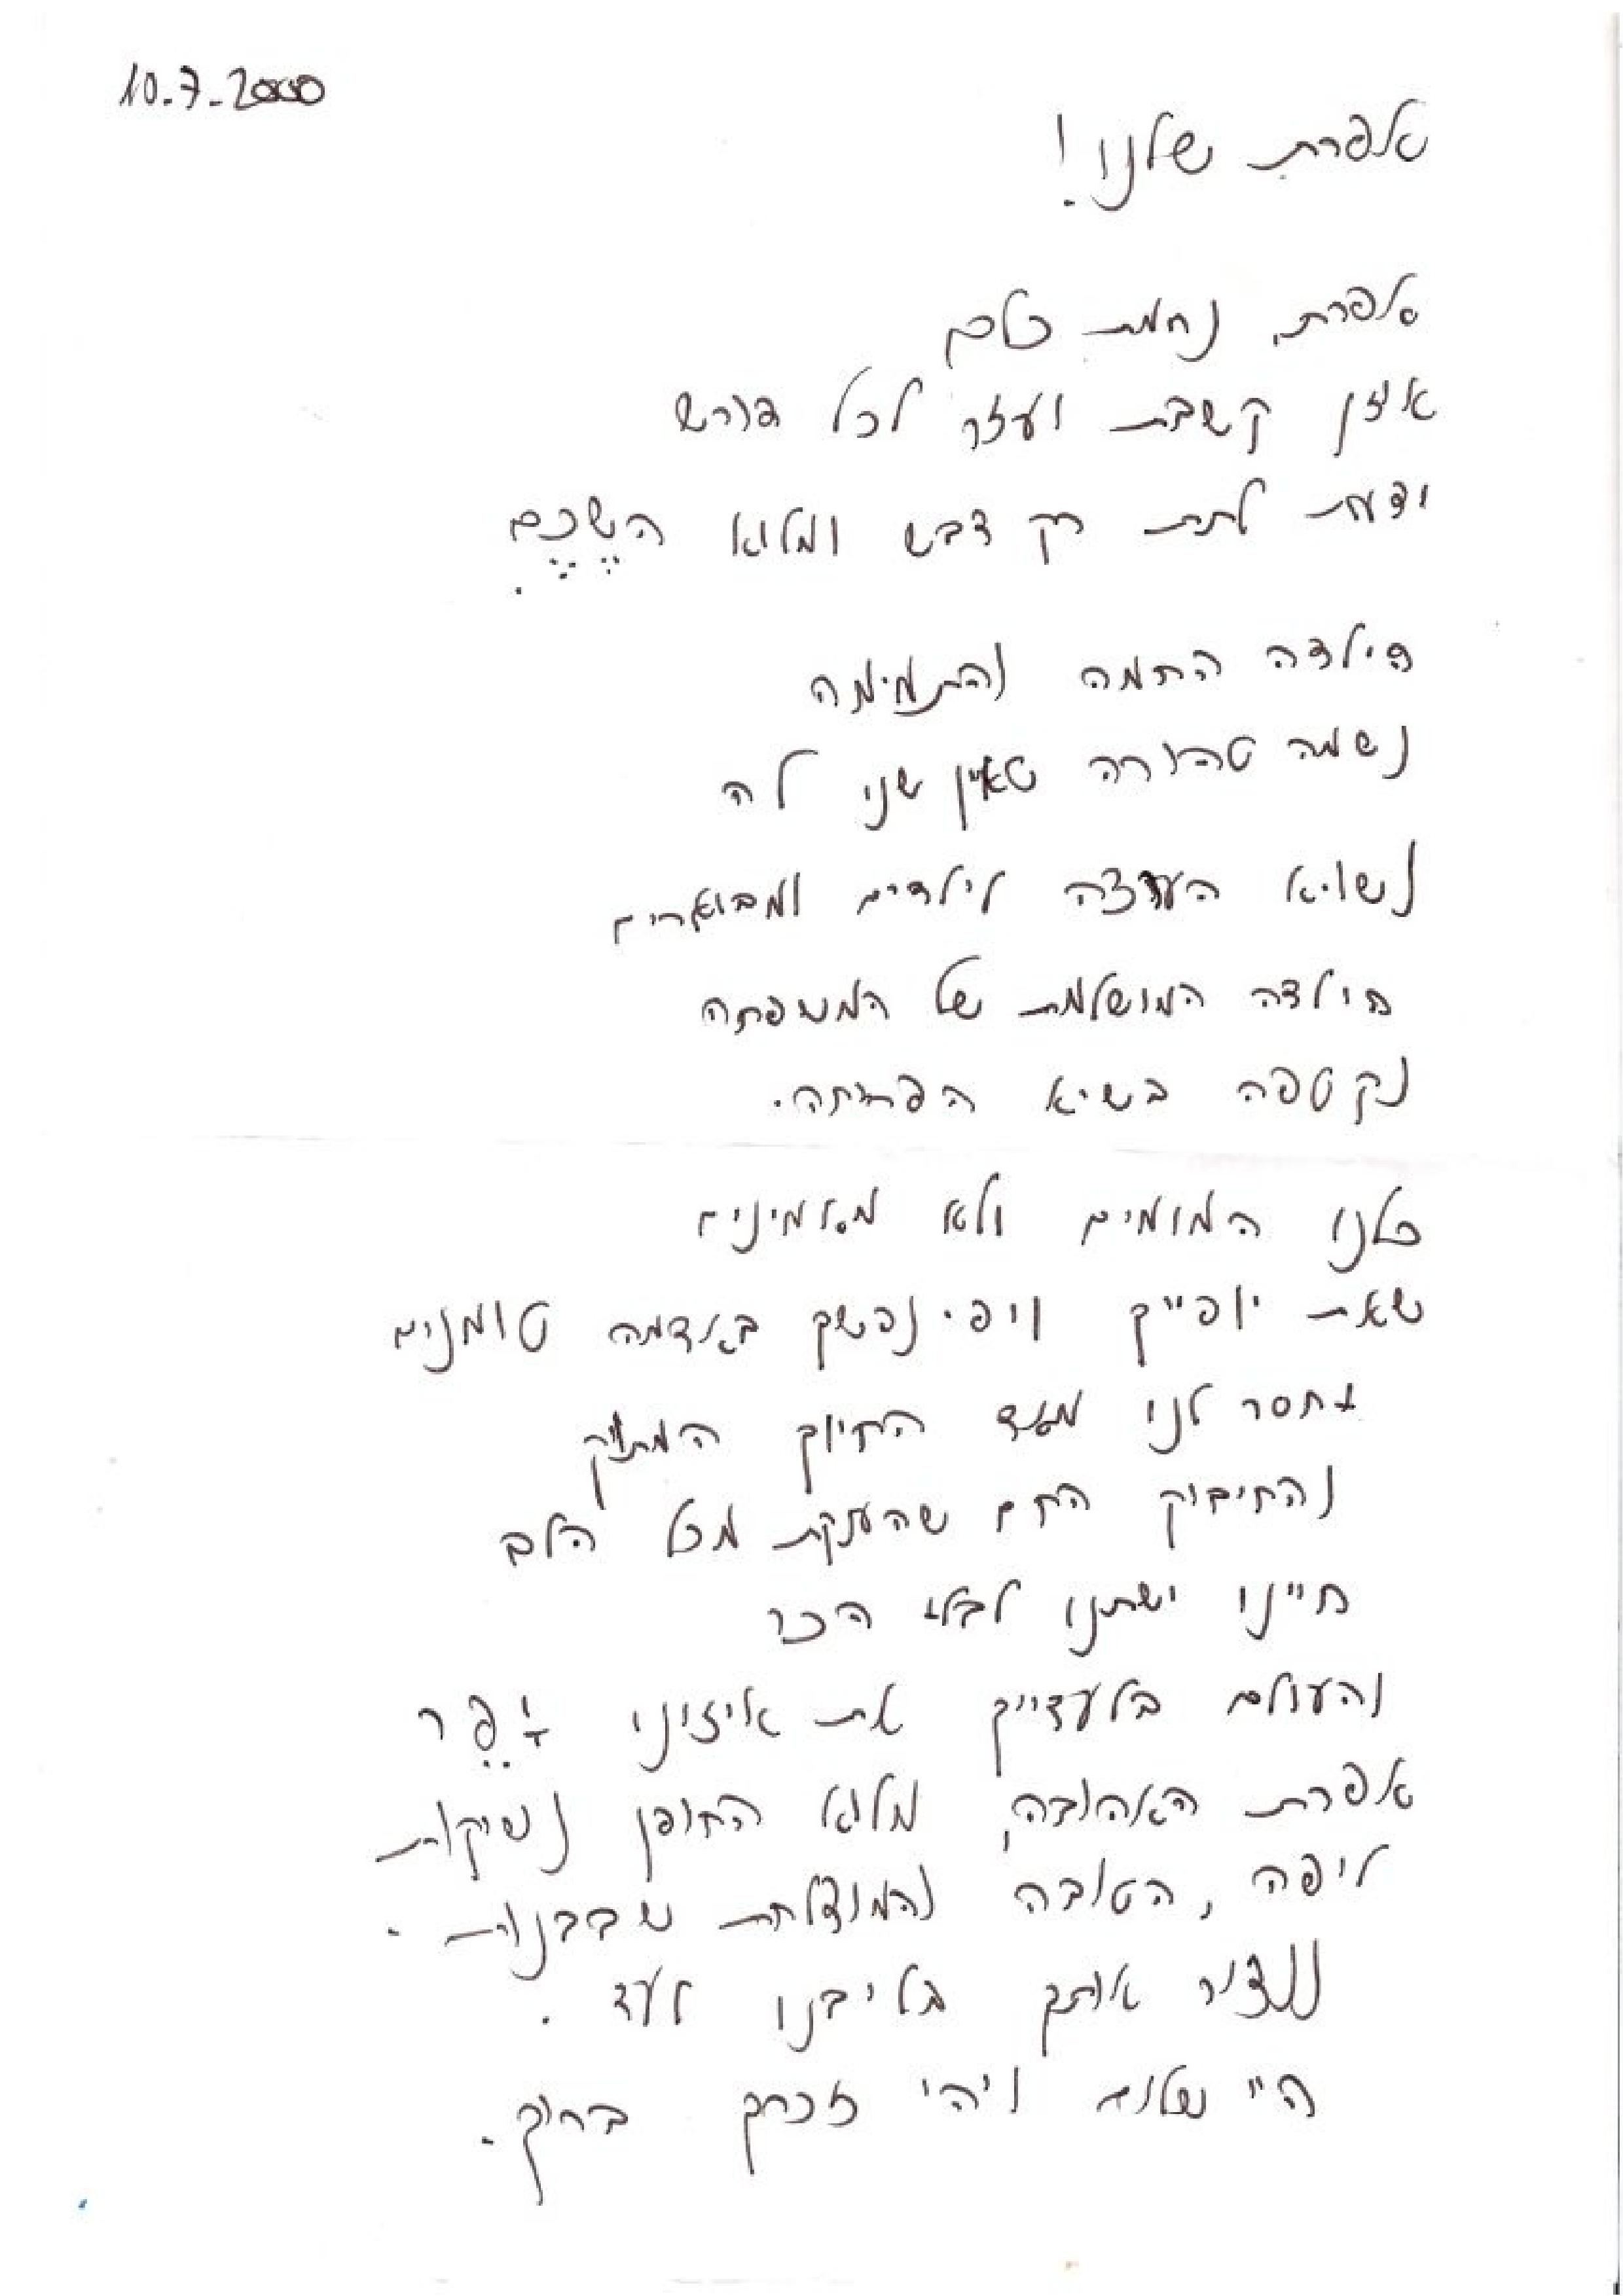 10.7.2000
אפרת שלנו!
אפרת, נחמת כולם
אוזן קשבת ועזר לכל דורש
ידעת לתת רק דבש ומלוא השֶכֶם.
הילדה החמה והתמימה
נשמה טהורה שאין שני לה
נשוא הערצה לילדים ומבוגרים
הילדה המושלמת של המשפחה
נקטפה בשיא הפריחה.
כולנו המומים ולא מאמינים
שאת יופייך ויפי נפשך באדמה טומנים
יחסר לנו מאד החיוך המתוק
והחיבוק החם שהענקת מכל הלב
חיינו ישתנו לבלי הכר
והעולם בלעדייך את איזוני
אפרת האהובה, מלוא החופן נשיקות
ליפה, הטובה והמוצלחת שבבנות.
ננציר אותך בליבנו לעד.
היי שלום ויהי זכרך ברוך.